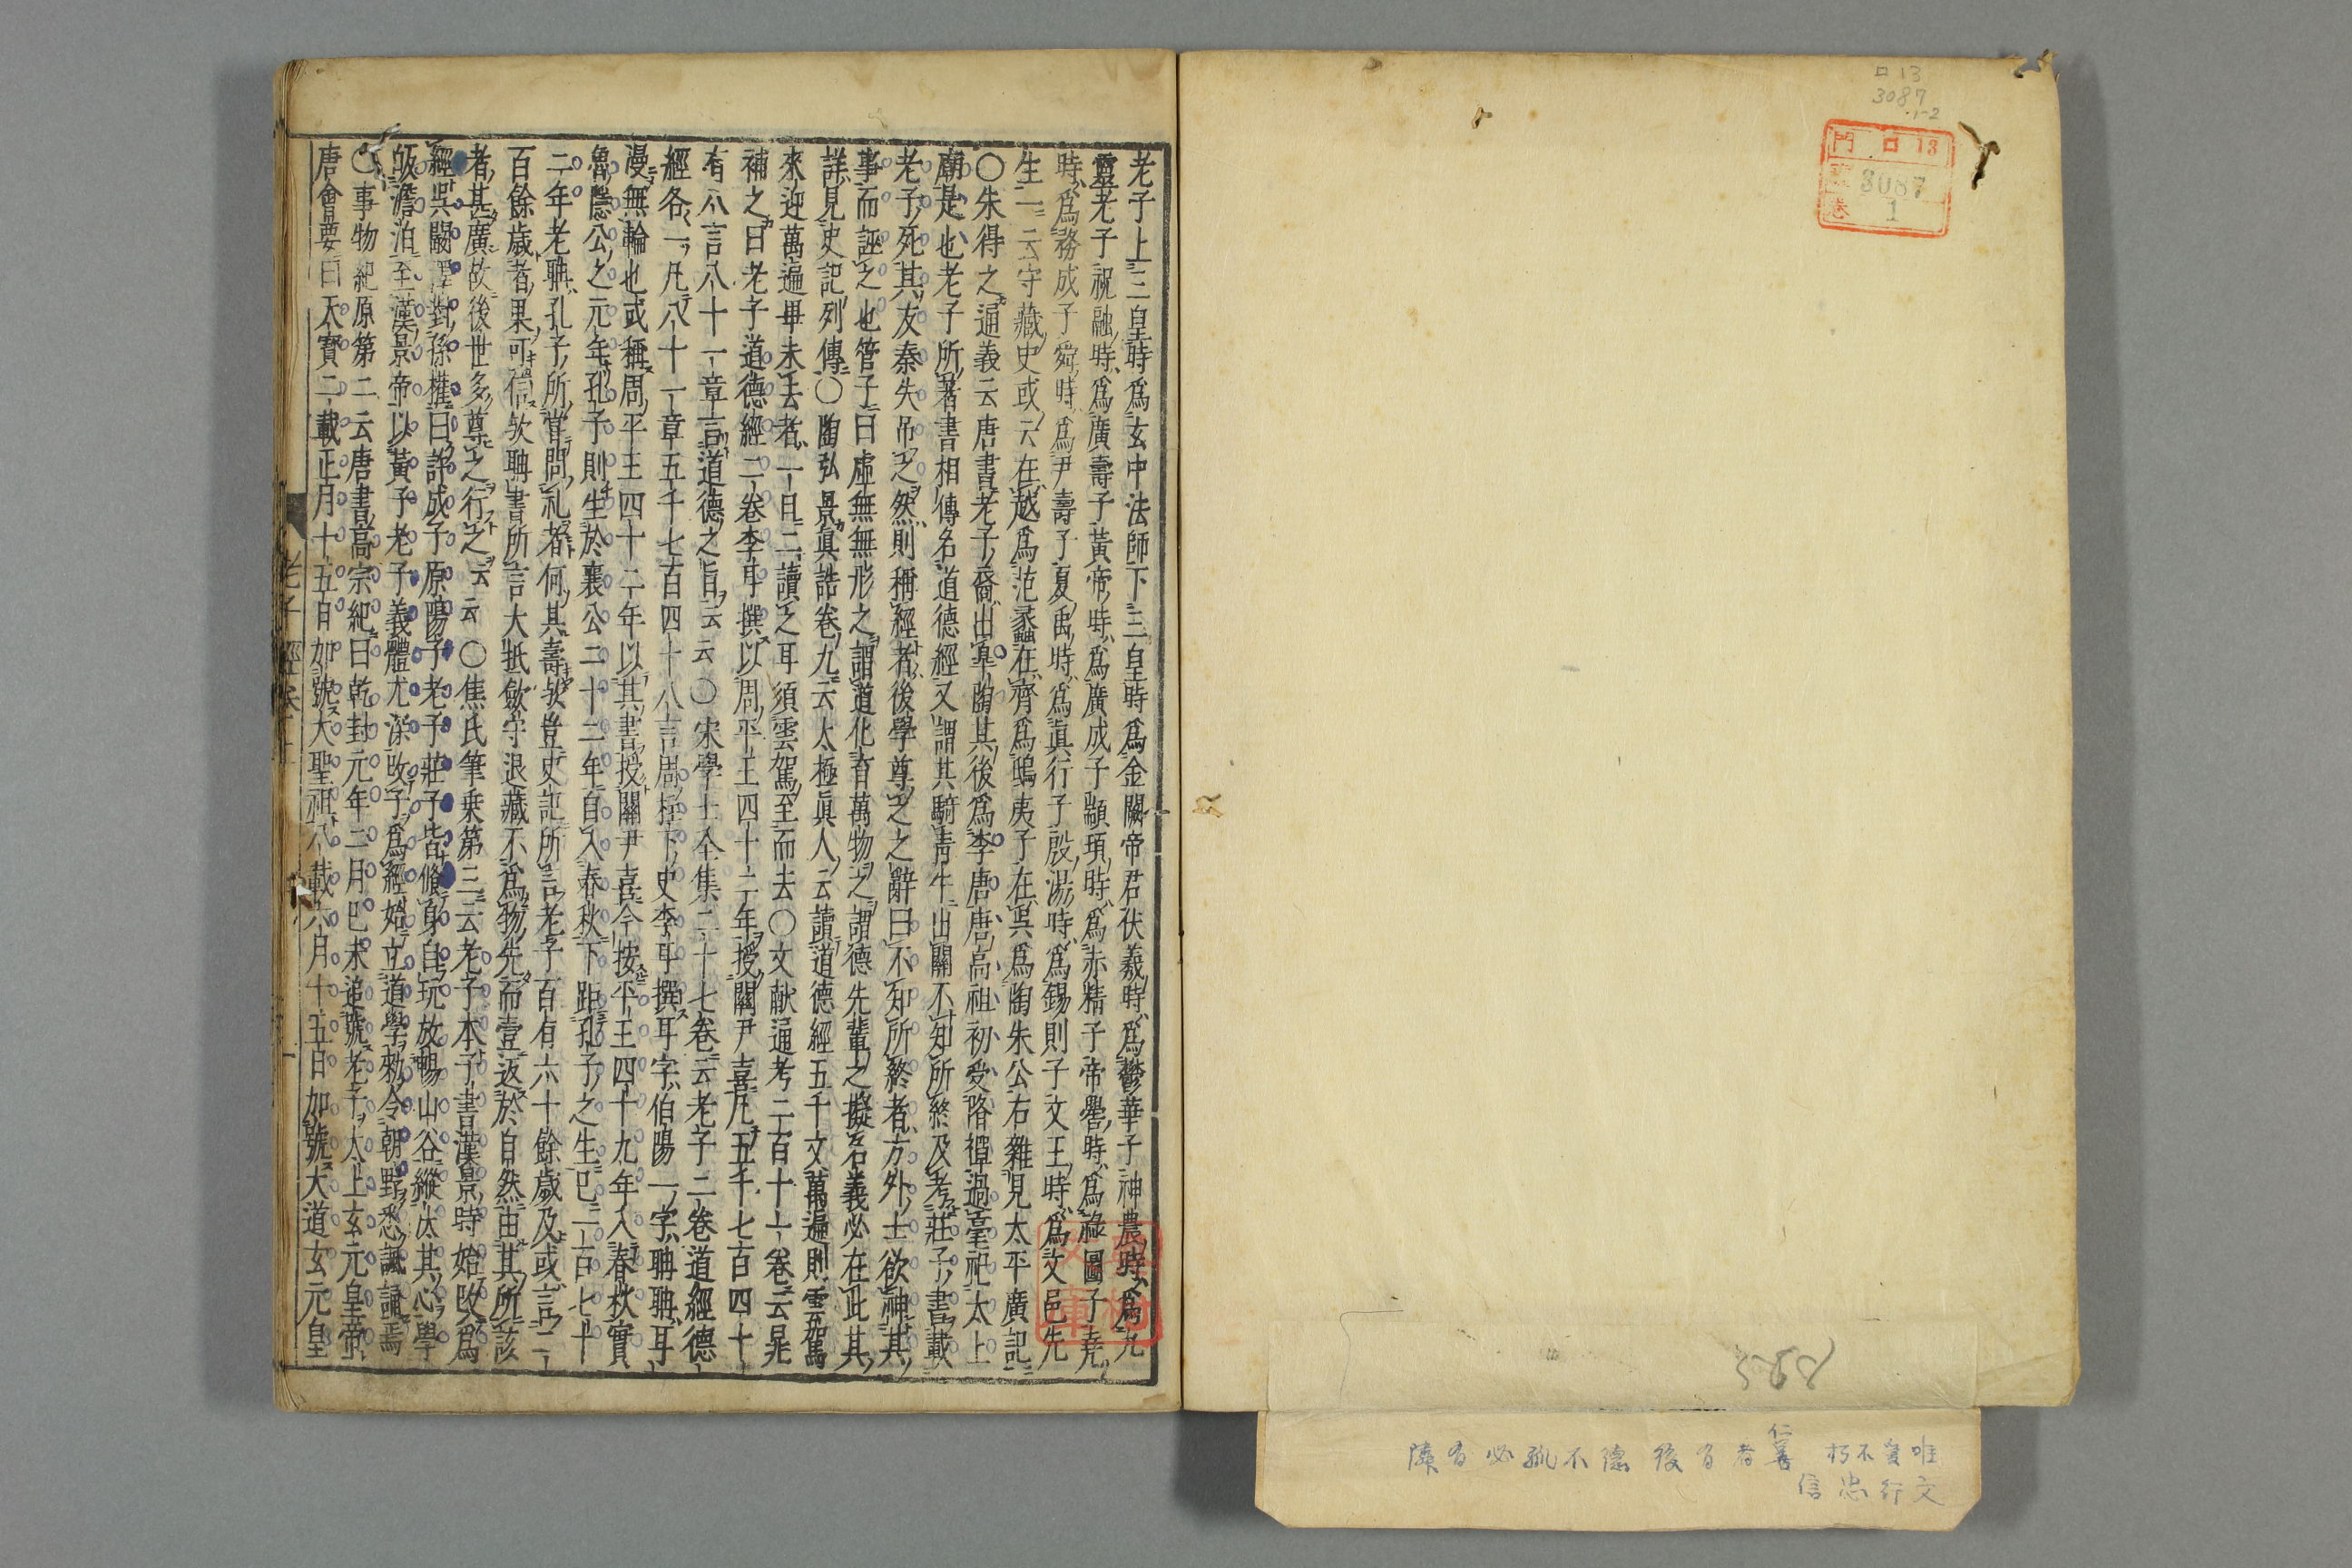 ロ13
3087
1-2
門 ロ 13
號 3087
卷 1
老子上三皇時爲玄中法師下三皇時爲金闕帝君伏羲時爲鬱華子神農時爲九
靈老子祝融時爲廣壽子黃帝時爲廣成子顓頊時爲赤精子帝嚳時爲祿圖子堯
時爲務成子舜時爲尹壽子夏禹時爲眞行子殷湯時爲錫則子文王時爲文邑先
生一云守藏史或云在越爲范蠡在齊爲鴟夷子在吳爲陶朱公右雜見太平廣記
〇朱得之通義云唐書老子裔出皐陶其後爲李唐唐高祖初受隋禪過亳祀太上
廟是也老子所著書相傳名道德經又謂其騎靑牛出關不知所終及考莊子書載
老子死其友秦失吊之然則稱經者後學尊之之辭曰不知所終者方外士欲神其
事而誣之也管子曰虛無無形之謂道化育萬物之謂德先輩之擬名義必在此其
詳見史記列傳〇陶弘景眞誥卷九云太極眞人云讀道德經五千文萬遍則雲駕
來迎萬遍畢未去者一日二讀之耳須雲駕至而去〇文献通考二百十一卷云晁
補之曰老子道德經二卷李耳撰以周平王四十二年授關尹喜凡五千七百四十
有八言八十一章言道德之旨云云〇宋學士全集二十七卷云老子二卷道經德
經各一凡八十一章五千七百四十八言周柱下史李耳撰耳字伯陽一字聃聃耳
漫無輪也或稱周平王四十二年以其書授關尹喜今按平王四十九年入春秋實
魯隱公之元年孔子則生於襄公二十二年自入春秋下距孔子之生已二百七十
二年老聃孔子所嘗問礼者何其壽欤豈史記所言老子百有六十餘歲及或言二
百餘歲者果可信欤聃書所言大抵斂守退藏不爲物先而壹返於自然由其所該
者甚廣故後世多尊之行之云云〇焦氏筆乗第三云老子本子書漢景時始改爲
經吳闞澤對孫權曰許成子原陽子老子莊子皆脩身自玩放暢山谷縱汰其心學
皈澹泊至漢景帝以黃子老子義體尤深改子爲經始立道學勑令朝野悉諷誦焉
〇事物紀原第二云唐書高宗紀曰乾封元年二月巳未追號老子太上玄元皇帝
唐會要曰天寶二載正月十五日加號大聖祖八載六月十五日加號大道玄元皇
老子經
唯
朽不
仁
善者有後德不孤必有隣
文行忠信